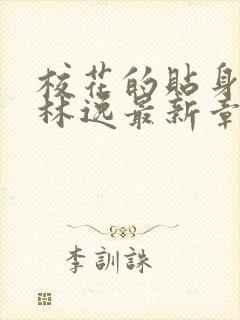 校花的贴身
林逸最新章
李訓誅